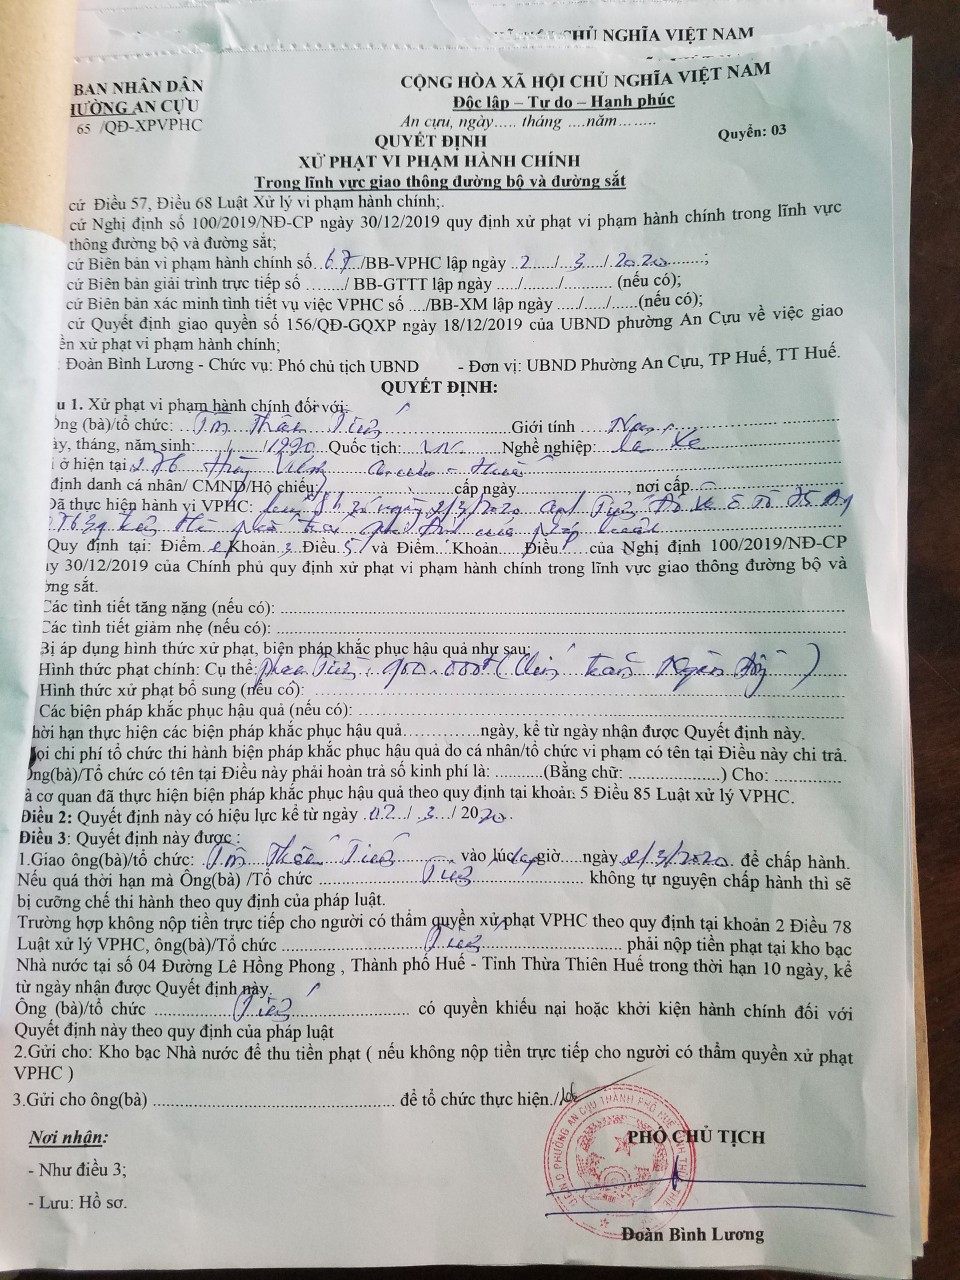 CHỦ NGHĨA VIỆT NAM
BAN NHÂN DÂN
HƯỜNG AN CỰU
65 /QĐ-XPVPHC
CỘNG HÒA XÃ HỘI CHỦ NGHĨA VIỆT NAM
Độc lập – Tự do – Hạnh phúc
An cựu, ngày..... tháng ....năm........
Quyển: 03
QUYẾT ĐỊNH
XỬ PHẠT VI PHẠM HÀNH CHÍNH
Trong lĩnh vực giao thông đường bộ và đường sắt
cứ Điều 57, Điều 68 Luật Xử lý vi phạm hành chính;.
cứ Nghị định số 100/2019/NĐ-CP ngày 30/12/2019 quy định xử phạt vi phạm hành chính trong lĩnh vực
thông đường bộ và đường sắt;
cứ Biên bản vi phạm hành chính số..67./BB-VPHC lập ngày ..2...../...3..../.2020.........;
cứ Biên bản giải trình trực tiếp số ........./ BB-GTTT lập ngày ....../......../........... (nếu có);
cứ Biên bản xác minh tình tiết vụ việc VPHC số ..../BB-XM lập ngày ...../...../.....(nếu có);
cứ Quyết định giao quyền số 156/QĐ-GQXP ngày 18/12/2019 của UBND phường An Cựu về việc giao
ền xử phạt vi phạm hành chính;
: Đoàn Bình Lương - Chức vụ: Phó chủ tịch UBND - Đơn vị: UBND Phường An Cựu, TP Huế, TT Huế.
QUYẾT ĐỊNH:
u 1. Xử phạt vi phạm hành chính đối với:
Ông (bà)/tổ chức: Tôn Thất Tiến Giới tính Nam
ày, tháng, năm sinh: / /1990 Quốc tịch: VN Nghề nghiệp: Lái Xe
i ở hiện tại 276 Hùng Vương An cựu - Huế
định danh cá nhân/ CMND/Hộ chiếu: cấp ngày nơi cấp
Đã thực hiện hành vi VPHC: ngày 2/3/2020 Tiến Đỗ Xe Ô Tô
của pháp luật
Quy định tại: Điểm e Khoản 3 Điều 5 và Điểm Khoản Điều của Nghị định 100/2019/NĐ-CP
ày 30/12/2019 của Chính phủ quy định xử phạt vi phạm hành chính trong lĩnh vực giao thông đường bộ và
ờng sắt.
Các tình tiết tăng nặng (nếu có):
Các tình tiết giảm nhẹ (nếu có):
Bị áp dụng hình thức xử phạt, biện pháp khắc phục hậu quả như sau:
Hình thức phạt chính: Cụ thể: phạt Tiền: 900.000đ (Chín trăm Ngàn đồng)
Hình thức xử phạt bổ sung (nếu có):
Các biện pháp khắc phục hậu quả (nếu có):
hời hạn thực hiện các biện pháp khắc phục hậu quả...............ngày, kể từ ngày nhận được Quyết định này.
ọi chi phí tổ chức thi hành biện pháp khắc phục hậu quả do cá nhân/tổ chức vi phạm có tên tại Điều này chi trả.
Ông(bà)/Tổ chức có tên tại Điều này phải hoàn trả số kinh phí là: ..........(Bằng chữ: .................) Cho: .............
à cơ quan đã thực hiện biện pháp khắc phục hậu quả theo quy định tại khoản 5 Điều 85 Luật xử lý VPHC.
Điều 2: Quyết định này có hiệu lực kể từ ngày .02../ .3.../ 2020.
Điều 3: Quyết định này được :
1.Giao ông(bà)/tổ chức: Tôn Thất Tiến, vào lúc giờ....ngày 2/3/2020. để chấp hành.
Nếu quá thời hạn mà Ông(bà) /Tổ chức Tiến không tự nguyện chấp hành thì sẽ
bị cưỡng chế thi hành theo quy định của pháp luật.
Trường hợp không nộp tiền trực tiếp cho người có thẩm quyền xử phạt VPHC theo quy định tại khoản 2 Điều 78
Luật xử lý VPHC, ông(bà)/Tổ chức Tiến phải nộp tiền phạt tại kho bạc
Nhà nước tại số 04 Đường Lê Hồng Phong , Thành phố Huế - Tỉnh Thừa Thiên Huế trong thời hạn 10 ngày, kể
từ ngày nhận được Quyết định này.
Ông (bà)/tổ chức Tiến có quyền khiếu nại hoặc khởi kiện hành chính đối với
Quyết định này theo quy định của pháp luật
2.Gửi cho: Kho bạc Nhà nước để thu tiền phạt ( nếu không nộp tiền trực tiếp cho người có thẩm quyền xử phạt
VPHC )
3.Gửi cho ông(bà) ........................................ để tổ chức thực hiện./
Nơi nhận:
- Như điều 3;
- Lưu: Hồ sơ.
PHÓ CHỦ TỊCH
U.B.N.D PHƯỜNG AN CỰU THÀNH PHỐ HUẾ TỈNH THỪA THIÊN HUẾ
Đoàn Bình Lương